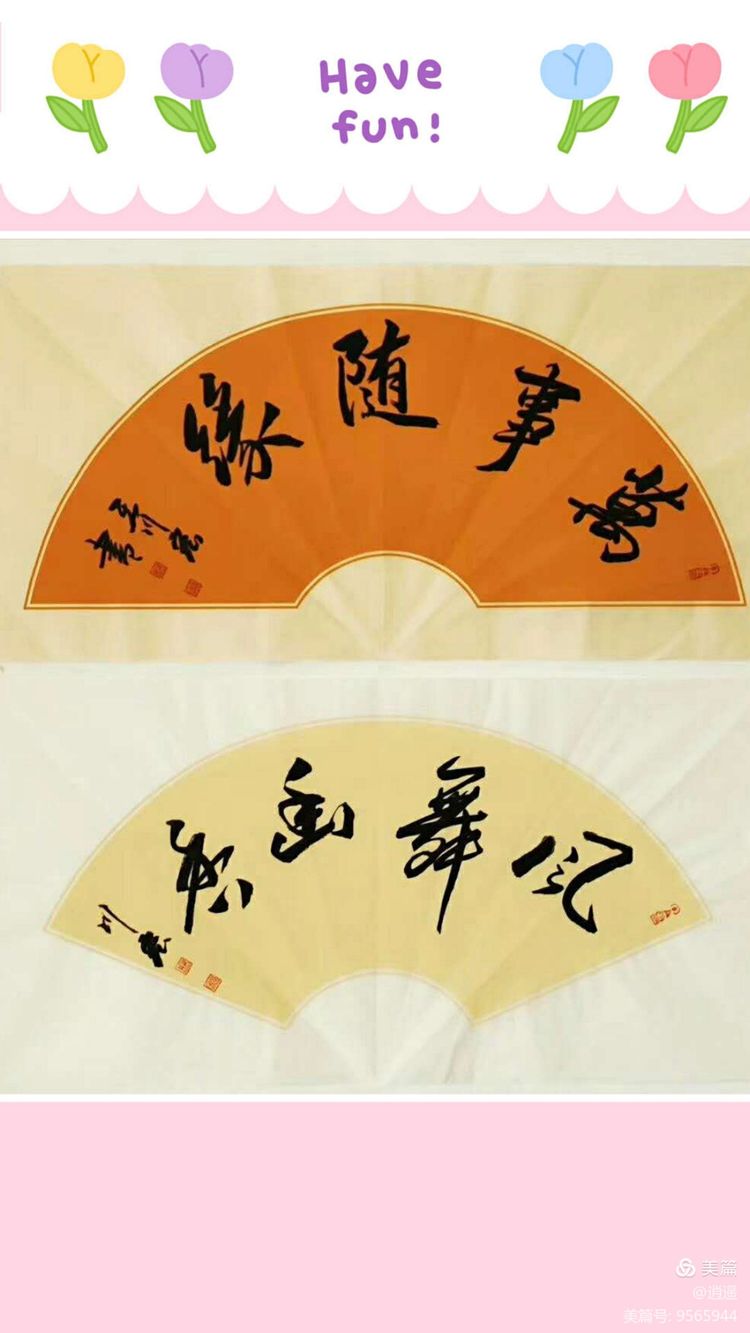 Have
fun!
萬事随緣
書
风舞
川
美篇
@逍遥
美篇号: 9565944